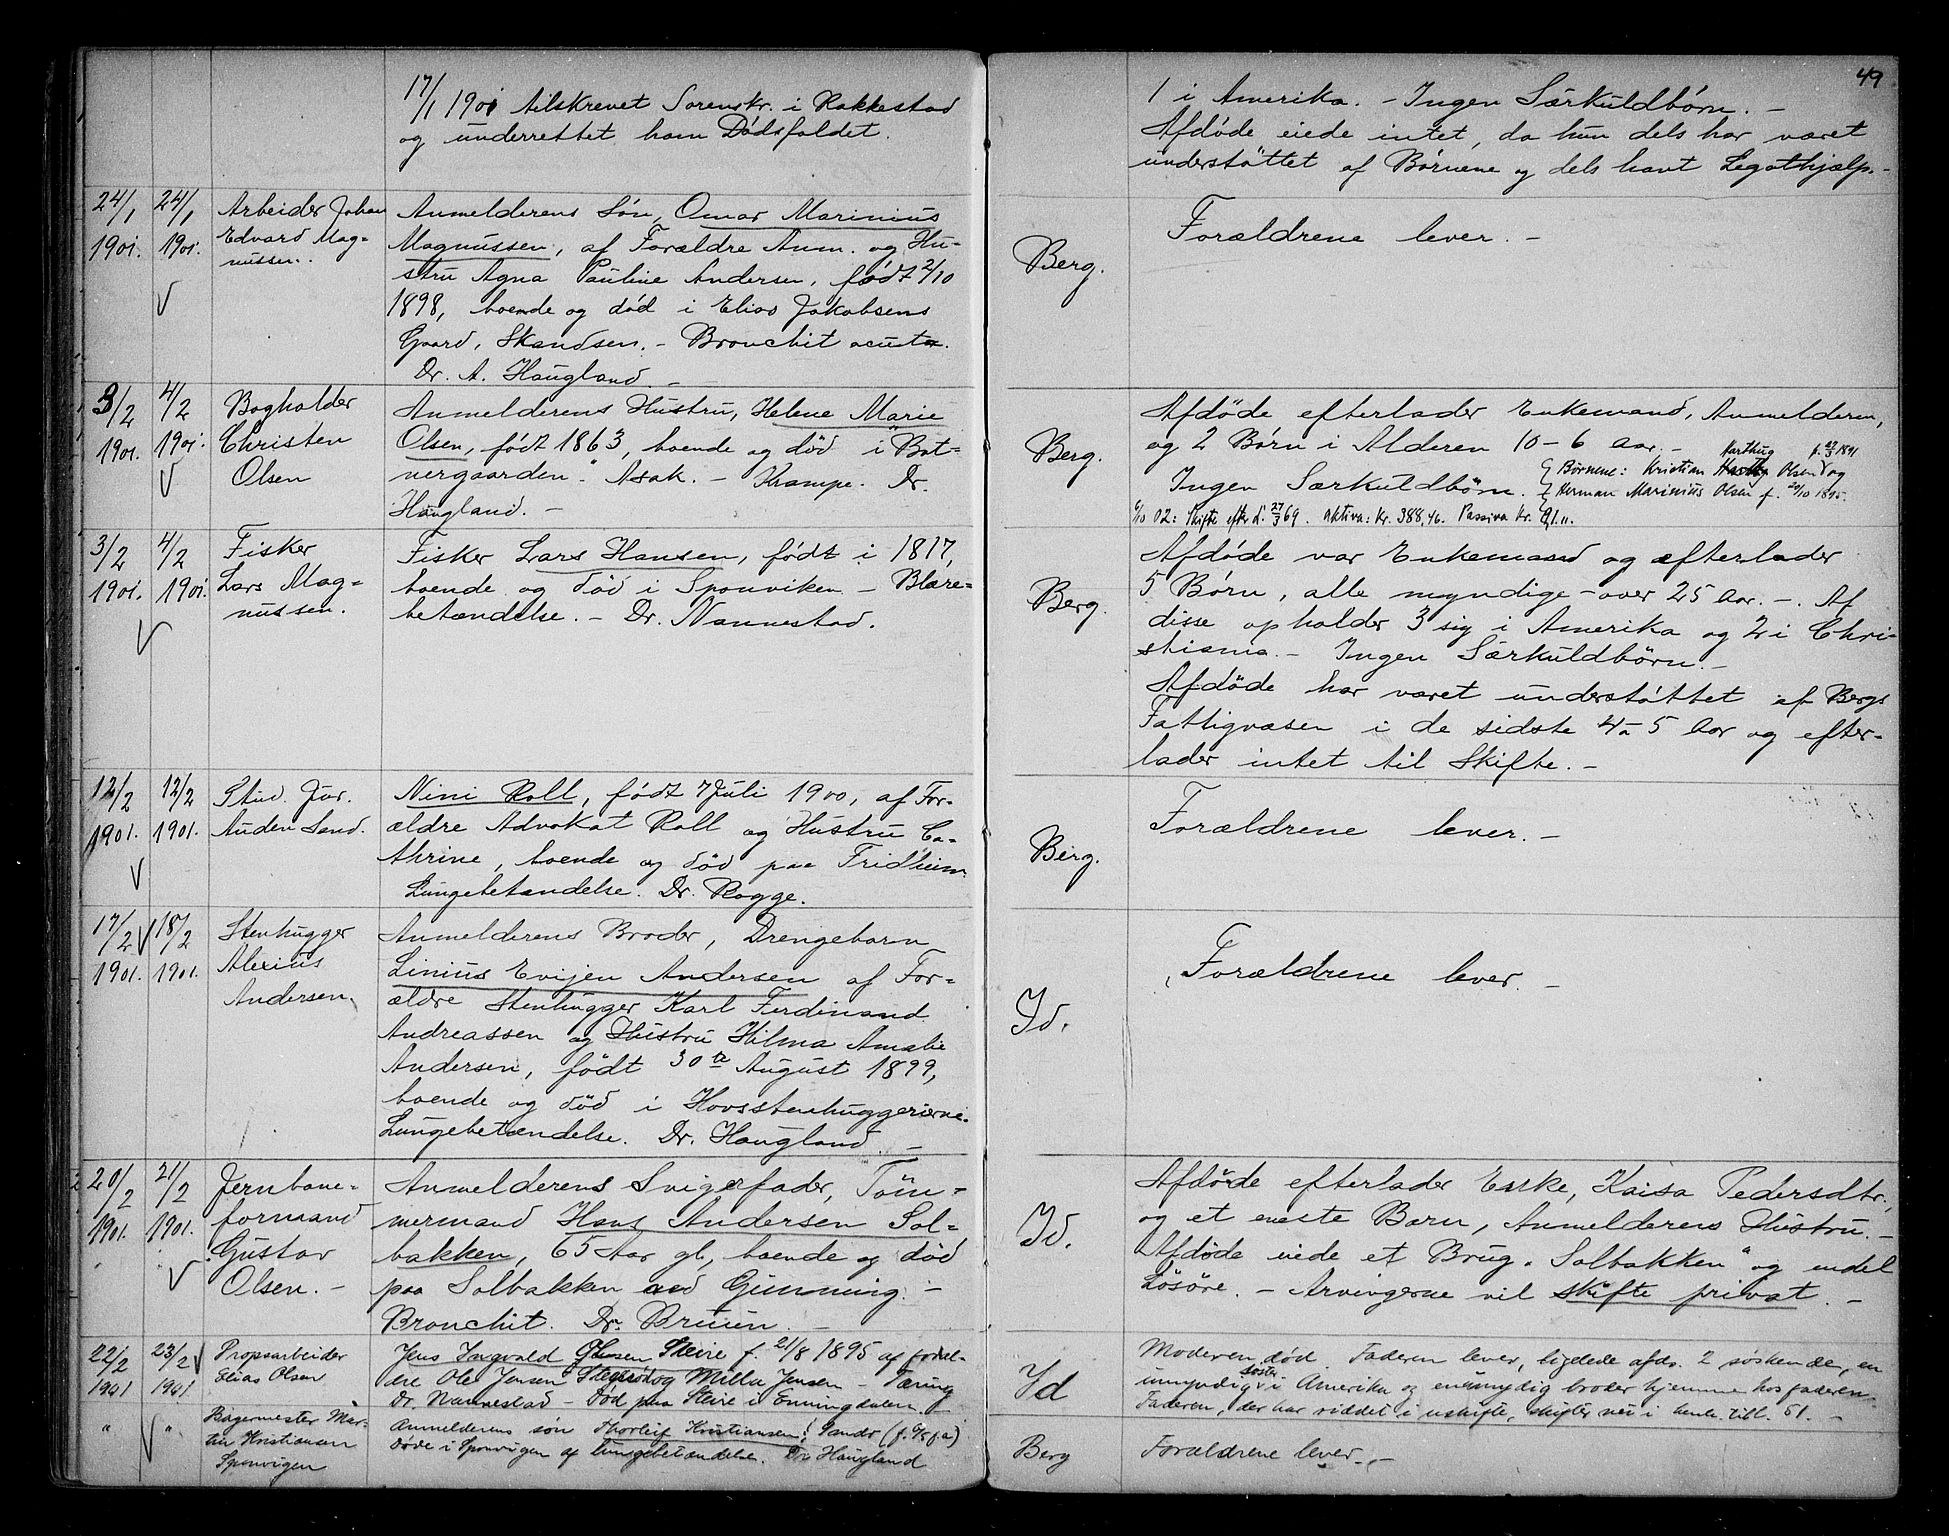 49
17/1 1901 tilskrevet Sorenskr. i Rakkestad
og underrettet ham Dødsfaldet.
1 i Amerika. – Ingen Særkuldbørn. –
Afdøde eiede intet, da hun dels har været
understøttet af Børnene og dels havt Legathjælp. –
24/1 1901. 24/1 1901.
Arbeider Johan
Edvard Mag=
nussen.
Anmelderens Søn, Omar Marinius
Magnussen, af Forældre Anm. og Hu-
stru Agna Pauline Andersen, født 2/10
1898, boende og død i Elias Jakobsens
Gaard, Skandsen. – Bronchit acuta.
Dr. A. Haugland. –
Berg.
Forældrene lever. –
3/2 1901. 4/2 1901.
Bogholder
Christen
Olsen
Anmelderens Hustru, Helene Marie
Olsen, født 1863, boende og død i "Bøt-
nergaarden". Asak. – Krampe. Dr.
Haugland. –
Berg.
Afdøde efterlader Enkemand, Anmelderen,
og 2 Børn i Alderen 10 – 6 aar. –
Ingen Særkuldbørn.
Harthug f. 23/3 1891
Børnene: Kristian Olsen og
Herman Marinius Olsen f. 20/10 1895.
6/10 02: Skifte efter L. 27/3 69. Aktiva: Kr. 388,46. Passiva Kr.
3/2 1901. 4/2 1901.
Fisker
Lars Mag=
nussen.
Fisker Lars Hansen, født i 1817,
boende og død i Sponviken – Blære=
betændelse. – Dr. Nannestad.
Berg.
Afdøde var Enkemand og efterlader
5 Børn, alle myndige – over 25 Aar. –. Af
disse opholder 3 sig i Amerika og 2 i Chri-
stiania. – Ingen Særkuldbørn. –
Afdøde har været understøttet af Bergs
Fattigvæsen i de sidste 4 a 5 Aar og efter-
lader intet til Skifte. –
12/2 1901. 12/2 1901.
Stud. Jur.
Auden Sand.
Nini Roll, født 7 Juli 1900, af For-
ældre Advokat Roll og Hustru Ca-
thrine, boende og død paa Fridheim.
Lungebetændelse. Dr. Rogge.
Berg.
Forældrene lever. –
17/2 1901. 18/2 1901.
Stenhugger
Alexius
Andersen.
Anmelderens Broder, Drengebarn
Linius Evijen Andersen af For-
ældre Stenhugger Karl Ferdinand
Andreassen og Hustru Hilma Amalie
Andersen, født 30te August 1899,
boende og død i Hovsstenhuggerierne.
Lungebetændelse. Dr. Haugland. –
Id.
Forældrene lever. –
20/2 1901. 21/2 1901.
Jernbane=
formand
Gustav
Olsen. –
Anmelderens Svigerfader, Tøm-
mermand Hans Andersen Sol-
bakken, 65 Aar gl., boende og død
paa Solbakken ved Gimming. –
Bronchit. Dr. Bruun. –
Id.
Afdøde efterlader Enke, Kaisa Pedersdtr.,
og et eneste Barn, Anmelderens Hustru. –
Afdøde eiede et Brug "Solbakken" og endel
Løsøre. – Arvingerne vil skifte privat. –
22/2 1901 23/2 1901.
Propsarbeider
Elias Olsen
Jens Ingvald Olsen Steire f. 21/8 1895 af foræl-
dre Ole Jensen og Milla Jensen – Tæring
Dr. Nannestad – Død paa Steire i Enningdalen.
Id
Moderen død. Faderen lever, ligeledes afds. 2 søskende, en
umyndig søster i Amerika og en umyndig broder hjemme hos faderen.
Faderen, der har siddet i uskifte, skifter nei i henh. till. 51. –
" "
Bagermester Mar-
tin Kristiansen
Sponvigen
Anmelderens søn Thorleif Kristiansen,
døde i Sponvigen af lungebetændelse. Dr Haugland
Berg
Forældrene lever. –